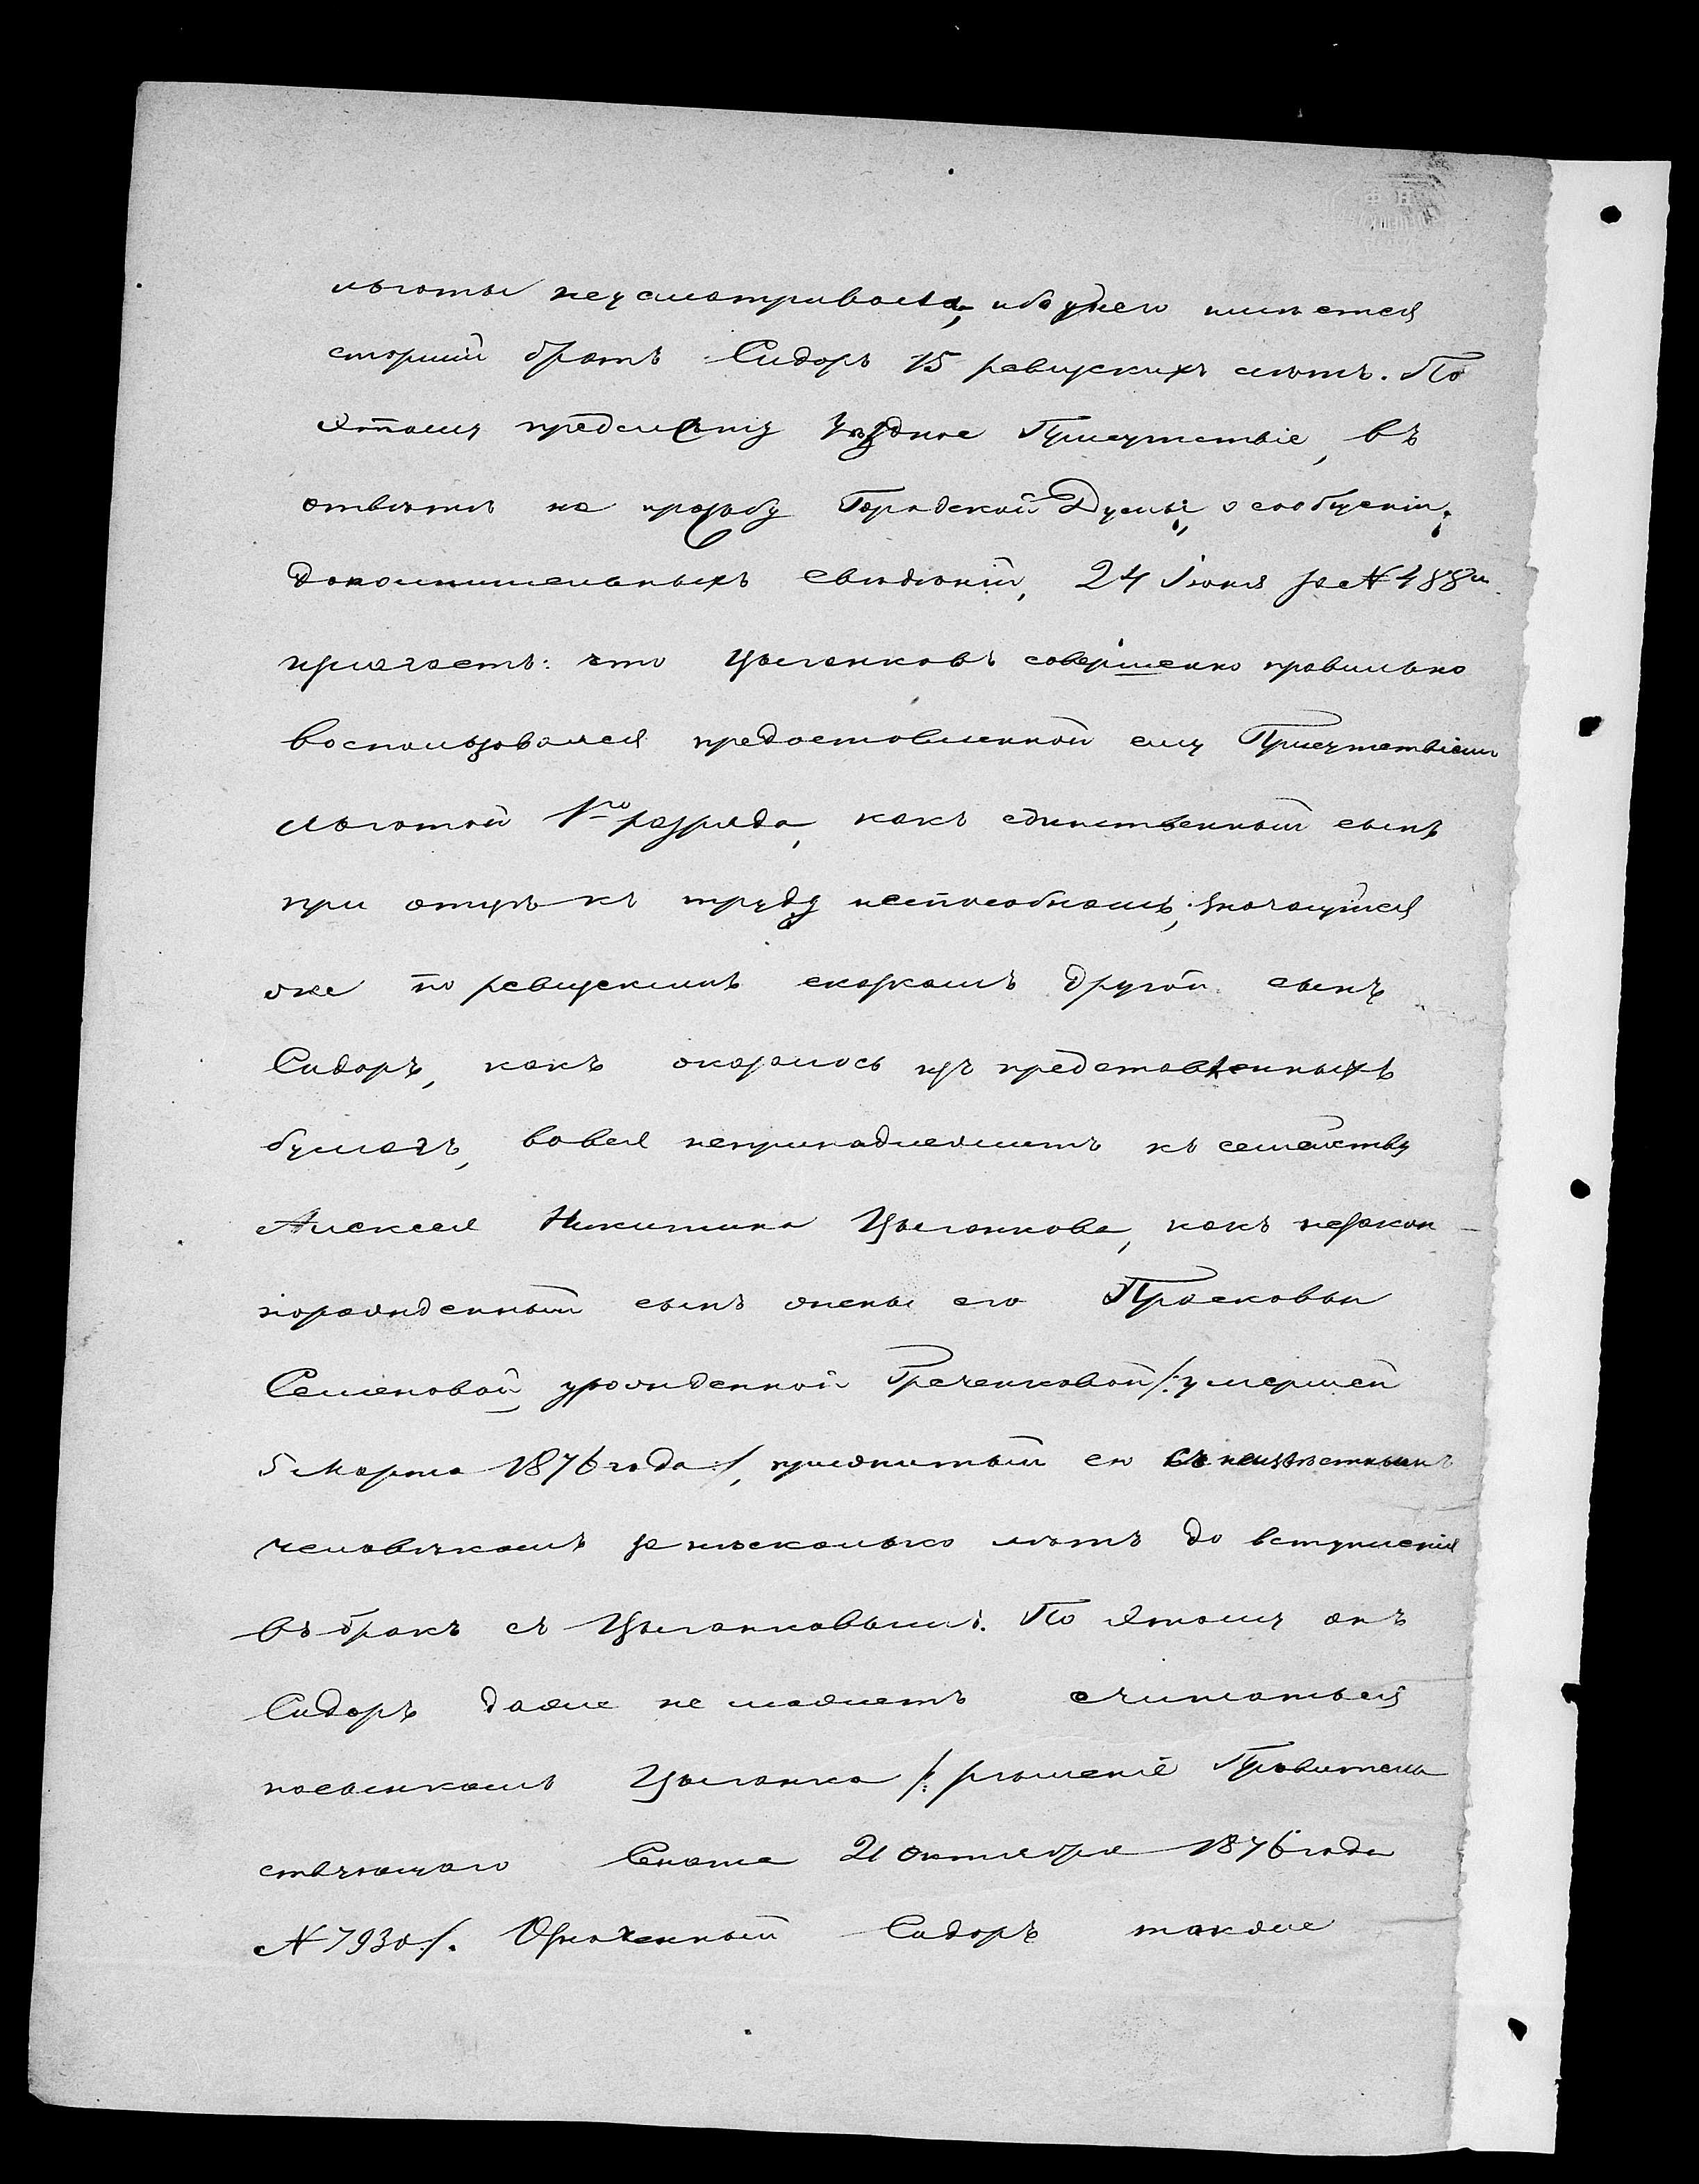 льготы неусматривается, ибо у него имѣется
старшій братъ Сидоръ 15 ревизскихъ лѣтъ. По
этому предмету Уѣздное Присутствіе, въ
отвѣтъ на прозьбу Городской Думы, о сообщеніи
дополнительныхъ свѣдѣній, 24 Іюня за № 488м
излагаетъ: что Цыганковъ совершенно правильно
воспользовался предоставленной ему Присутствіемъ
льготой 1го разряда, какъ единственный сынъ
при отцѣ къ труду неспособномъ, значущійся
же по ревизскимъ сказкамъ другой сынъ
Сидоръ, какъ оказалось изъ представленныхъ
бумагъ, вовсе непринадлежитъ къ семейству
Алексея Никитина Цыганкова, какъ незакон-
норожденный сынъ жены его Прасковьи
Семеновой, урожденной Гречениковой /: умершей
5 Марта 1876 года :/, прижитый ею съ неизвѣстнымъ
человѣкомъ за нѣсколько лѣтъ до вступленія
въ бракъ съ Цыганковымъ. По этому онъ
Сидоръ даже не можетъ считаться
пасынкомъ Цыганка /: рѣшеніе Правитель
ствующаго Сената 21 Октября 1876 года
№ 7930 :/. Означенный Сидоръ также